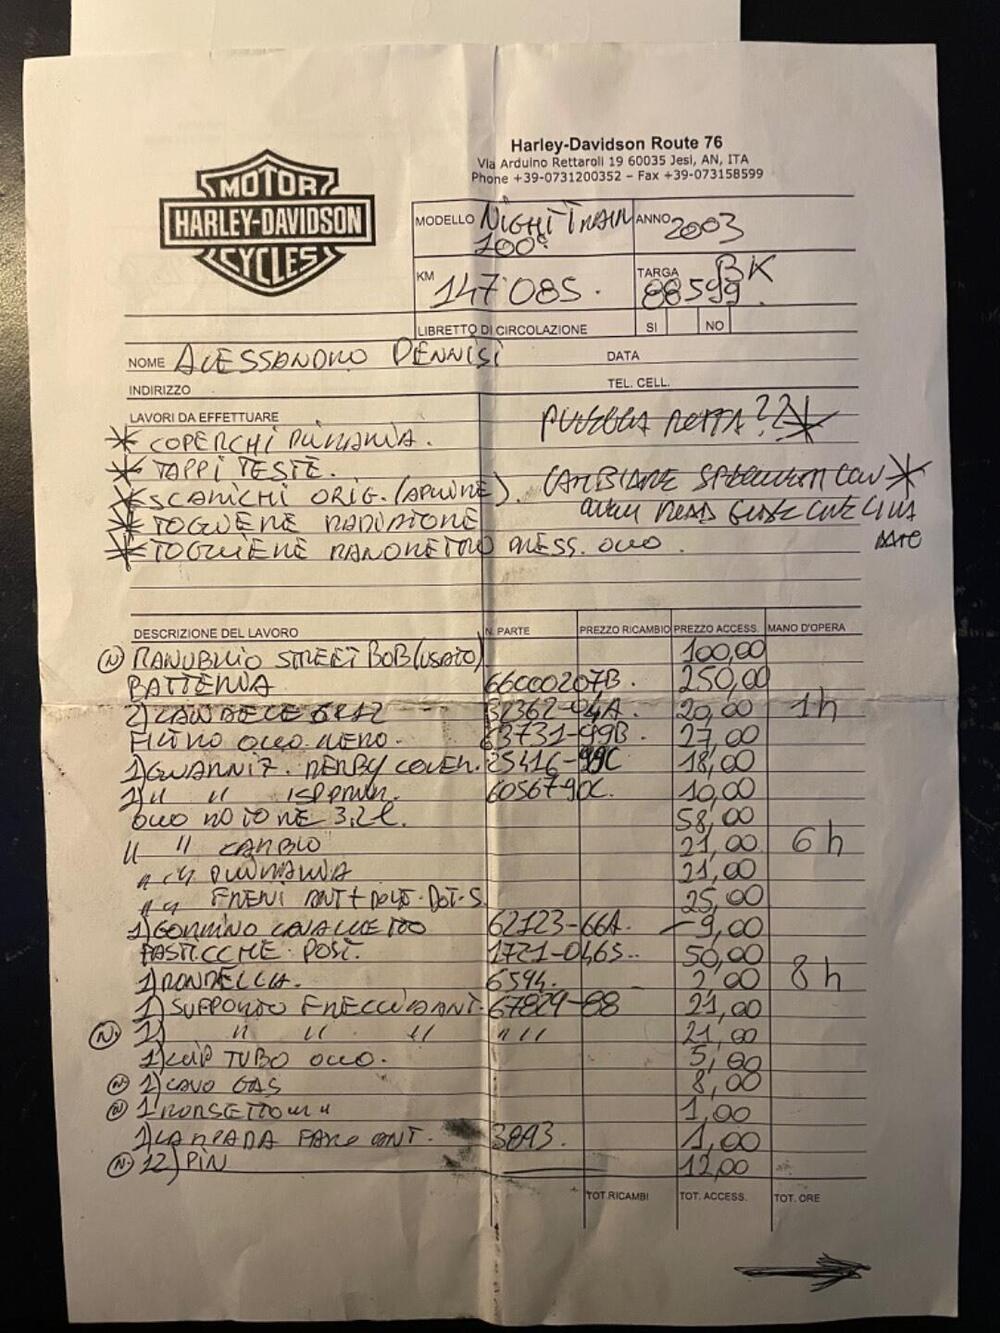 MOTOR
HARLEY-DAVIDSON
CYCLES
Harley-Davidson Route 76
Via Arduino Rettaroli 19 60035 Jesi, AN, ITA
Phone +39-0731200352 – Fax +39-073158599
MODELLO NIGHT TRAIN 100° ANNO 2003
KM 147'085. TARGA BK 88599.
LIBRETTO DI CIRCOLAZIONE SI NO
NOME ALESSANDRO PENNISI DATA
INDIRIZZO TEL. CELL.
LAVORI DA EFFETTUARE
COPERCHI PRIMARIA. ROTTA??
TAPPI TESTE.
SCARICHI ORIG. (APRIRE). CAMBIARE CON
TOGLIERE
TOGLIERE MANOMETRO PRESS. OLIO.
DESCRIZIONE DEL LAVORO N. PARTE PREZZO RICAMBIO PREZZO ACCESS. MANO D'OPERA
(N) MANUBRIO STREET BOB (USATO) 100,00
BATTERIA 66000207B. 250,00
2) CANDELE 32362-04A. 20,00 1h
FILTRO OLIO NERO. 63731-99B. 27,00
1) GUARNIZ. DERBY COVER. 25416-99C 18,00
1) " " 60567-90C. 10,00
OLIO MOTORE 3,2l. 58,00
" " CAMBIO 21,00 6h
" " PRIMARIA 21,00
" " FRENI ANT + POST. DOT-5. 25,00
1) GOMMINO CAVALLETTO 62123-66A. 9,00
PASTICCHE POST. 1721-0465.. 50,00
1) RONDELLA. 6594. 2,00 8h
1) SUPPORTO FRECCIA ANT. 67829-88 21,00
(N.) 1) " " " " " " 21,00
1) CLIP TUBO OLIO. 5,00
(N) 1) CAVO GAS 8,00
(N) 1 MORSETTO " " 1,00
1) LAMPADA FARO ANT. 3893. 1,00
(N.) 12) PIN 12,00
TOT RICAMBI TOT. ACCESS. TOT. ORE